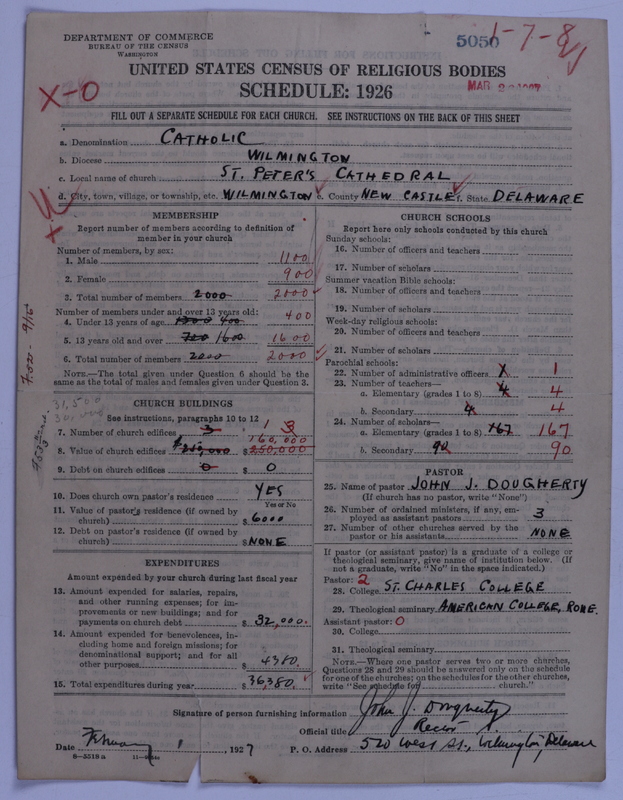 DEPARTMENT OF COMMERCE
BUREAU OF THE CENSUS
WASHINGTON
5050
1-7-8
UNITED STATES CENSUS OF RELIGIOUS BODIES
SCHEDULE: 1926
X-0
FILL OUT A SEPARATE SCHEDULE FOR EACH CHURCH. SEE INSTRUCTIONS ON THE BACK OF THIS SHEET
a. Denomination CATHOLIC
b. Diocese WILMINGTON
c. Local name of church ST. PETER'S CATHEDRAL
d. City, town, village, or township, etc. WILMINGTON e. County NEW CASTLE f. State DELAWARE
MEMBERSHIP
Report number of members according to definition of member in your church
Number of members, by sex:
1. Male 1100
2. Female 900
3. Total number of members 2000 2000
Number of members under and over 13 years old:
4. Under 13 years of age 1300 400 400
5. 13 years old and over 700 1600 1600
6. Total number of members 2000 2000
NOTE.—The total given under Question 6 should be the same as the total of males and females given under Question 3.
CHURCH BUILDINGS
See instructions, paragraphs 10 to 12
7. Number of church edifices 3 1 3
8. Value of church edifices $250,000 160,000 250,000
9. Debt on church edifices 0 $ 0
10. Does church own pastor's residence YES
Yes or No
11. Value of pastor's residence (if owned by church) $ 6000
12. Debt on pastor's residence (if owned by church) $ NONE
EXPENDITURES
Amount expended by your church during last fiscal year
13. Amount expended for salaries, repairs, and other running expenses; for improvements or new buildings; and for payments on church debt $ 32,000.
14. Amount expended for benevolences, including home and foreign missions; for denominational support; and for all other purposes 4380.
15. Total expenditures during year $ 36,380.
CHURCH SCHOOLS
Report here only schools conducted by this church
Sunday schools:
16. Number of officers and teachers
17. Number of scholars
Summer vacation Bible schools:
18. Number of officers and teachers
19. Number of scholars
Week-day religious schools:
20. Number of officers and teachers
21. Number of scholars
Parochial schools:
22. Number of administrative officers 1
23. Number of teachers—
a. Elementary (grades 1 to 8) 4 4
b. Secondary 4 4
24. Number of scholars—
a. Elementary (grades 1 to 8) 167 167
b. Secondary 90 90
PASTOR
25. Name of pastor JOHN J. DOUGHERTY
(If church has no pastor, write "None")
26. Number of ordained ministers, if any, employed as assistant pastors 3
27. Number of other churches served by the pastor or his assistants NONE
If pastor (or assistant pastor) is a graduate of a college or theological seminary, give name of institution below. (If not a graduate, write "No" in the space indicated.)
Pastor: 2
28. College ST. CHARLES COLLEGE
29. Theological seminary AMERICAN COLLEGE, ROME.
Assistant pastor: 0
30. College
31. Theological seminary
NOTE.—Where one pastor serves two or more churches, Questions 28 and 29 should be answered only on the schedule for one of the churches; on the schedules for the other churches, write "See schedule for church."
Signature of person furnishing information John J. Dougherty
Official title Rector
Date February 1, 1927 P. O. Address 520 West St., Wilmington, Delaware